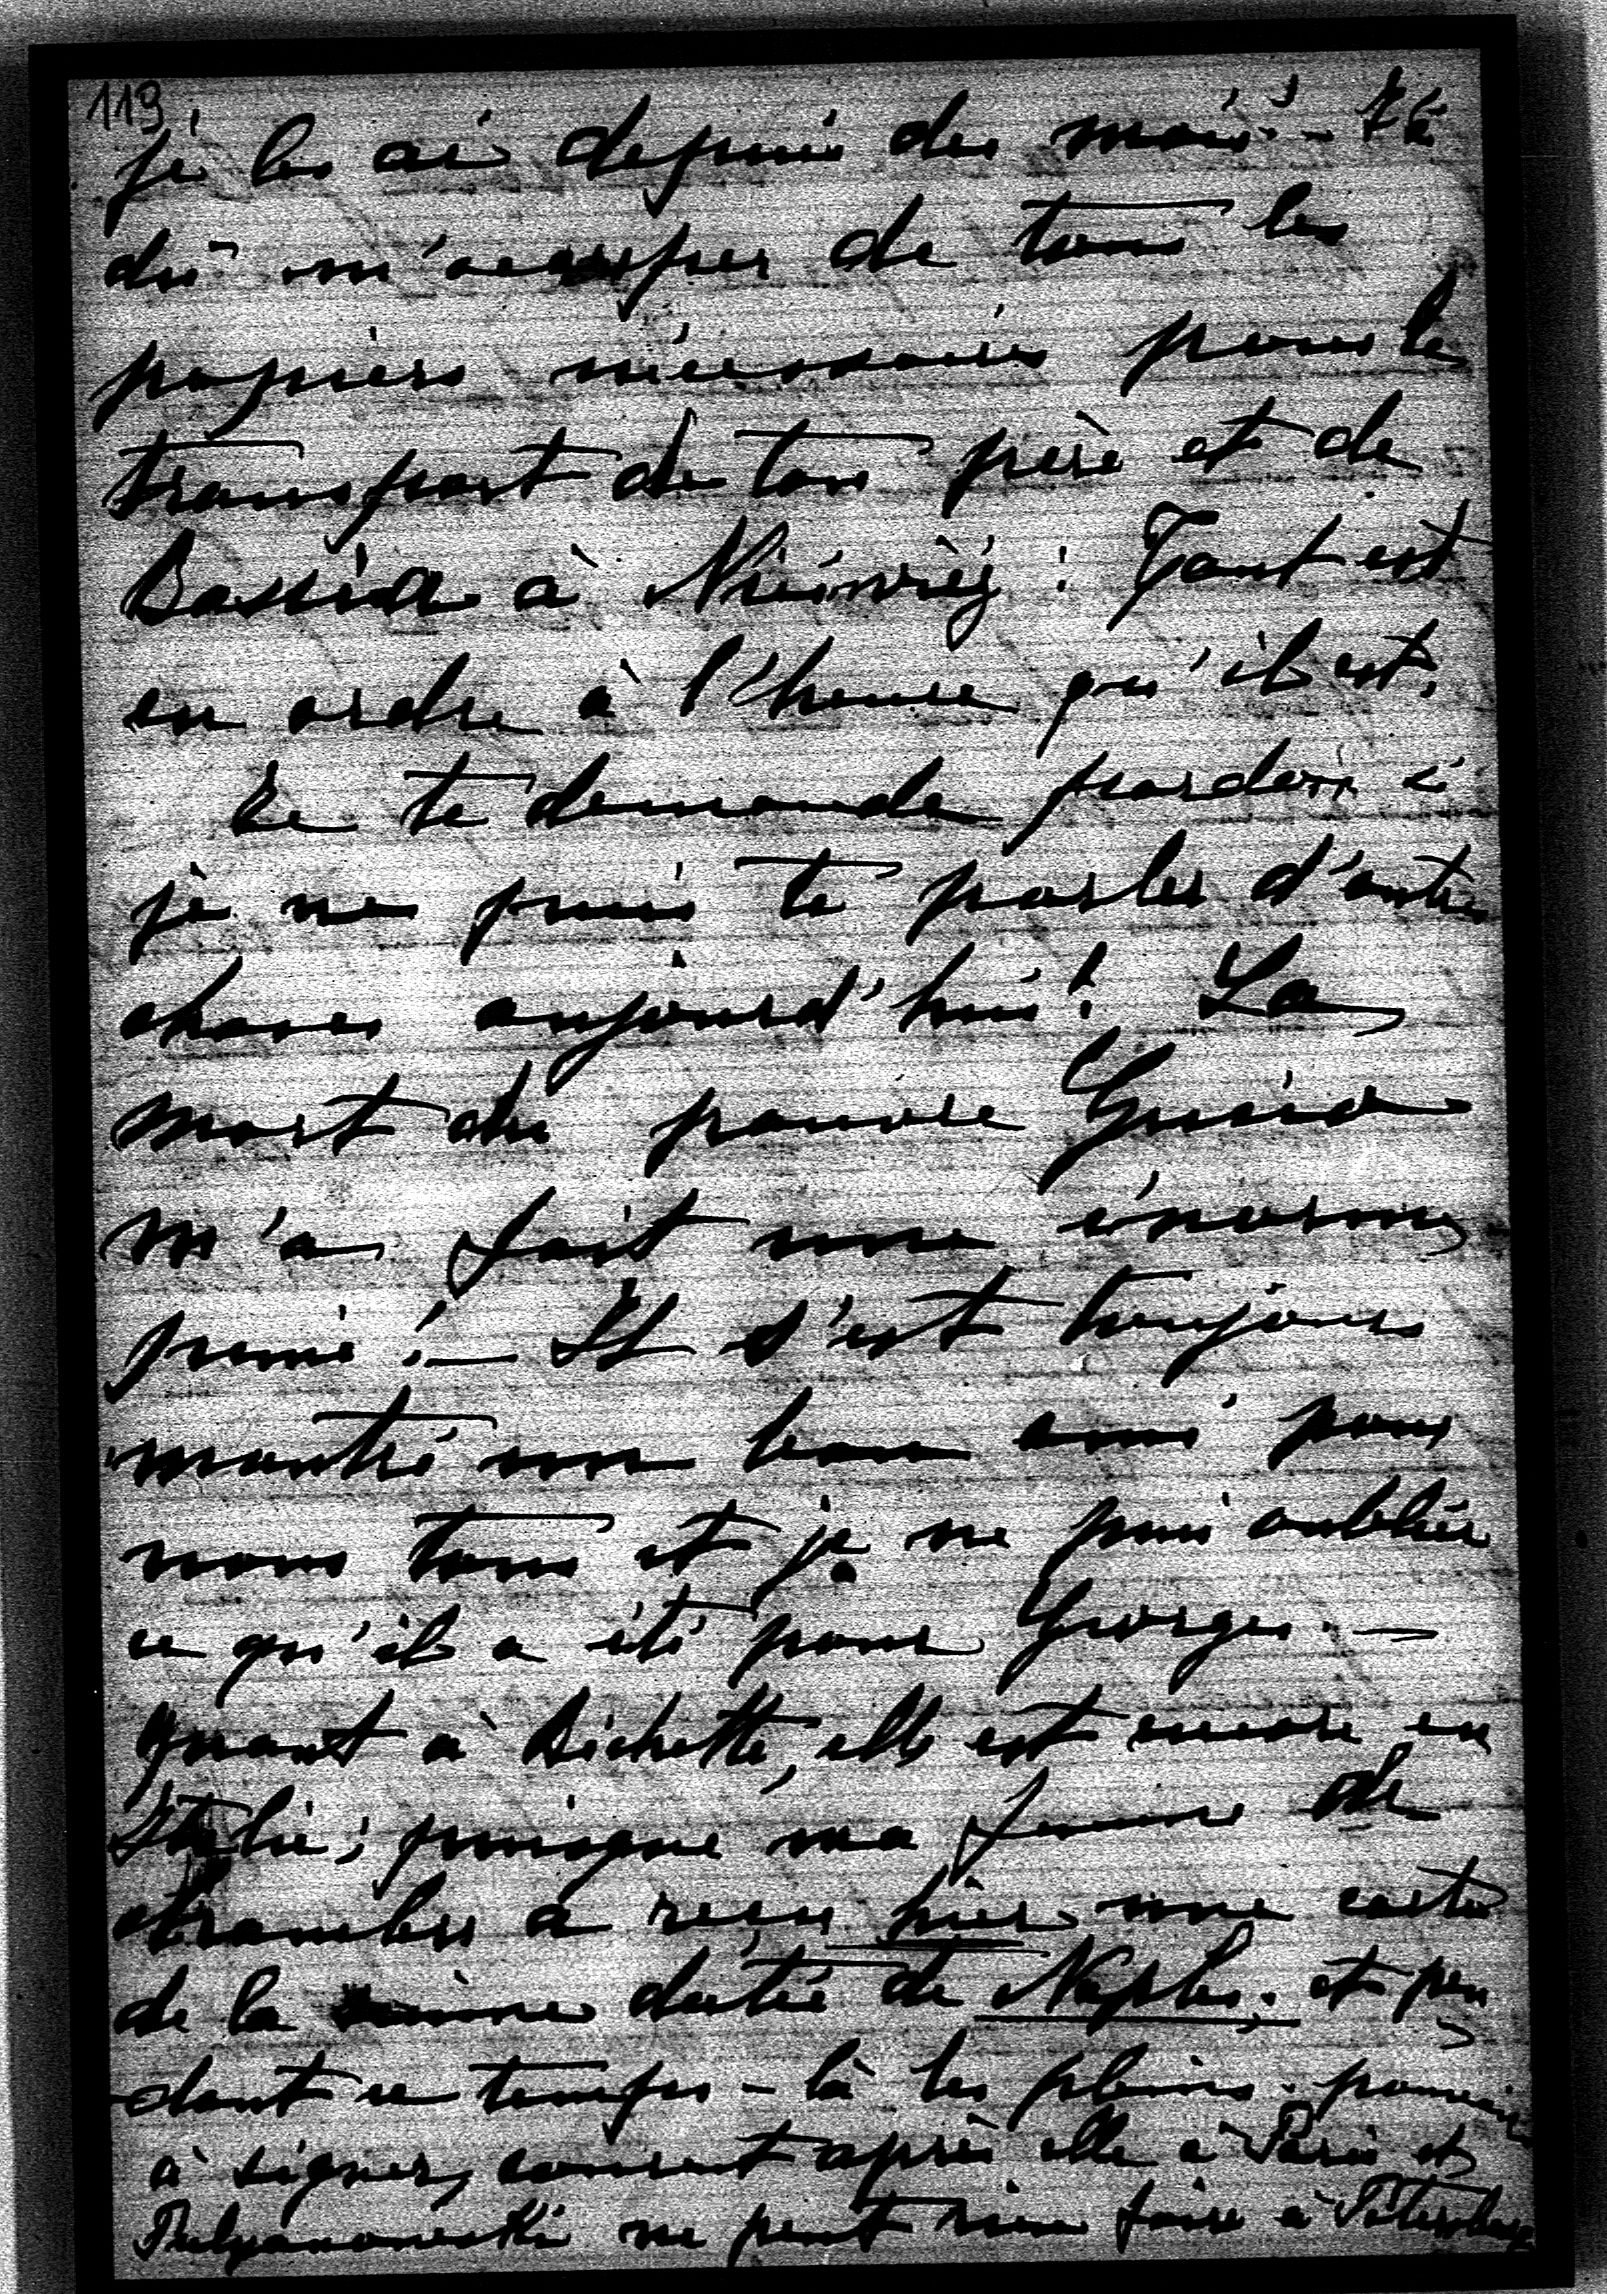 119
je les ai depuis des mois! - J'ai
dû m'occuper de tous les
papiers nécessaires pour le
transport de ton père et de
Dassia à Nieświéj! Tout est
en ordre à l'heure qu'il est.
Je te demande pardon si
je ne puis te parler d'autres
choses aujourd'hui! La
mort du pauvre Guido
m'a fait une énorme
peine! — Il s'est toujours
montré un bon ami pour
nous tous et je ne puis oublier
ce qu'il a été pour Georges. —
Quant à Bichette, elle est encore en
Italie; puisque ma femme de
chambre a reçu hier une carte
de la sienne datée de Naples. et pen
dant ce temps-là les pleins-pouvoirs
à signer, courent après elle à Paris et
Tulpanowski ne peut rien faire à Pétersbourg